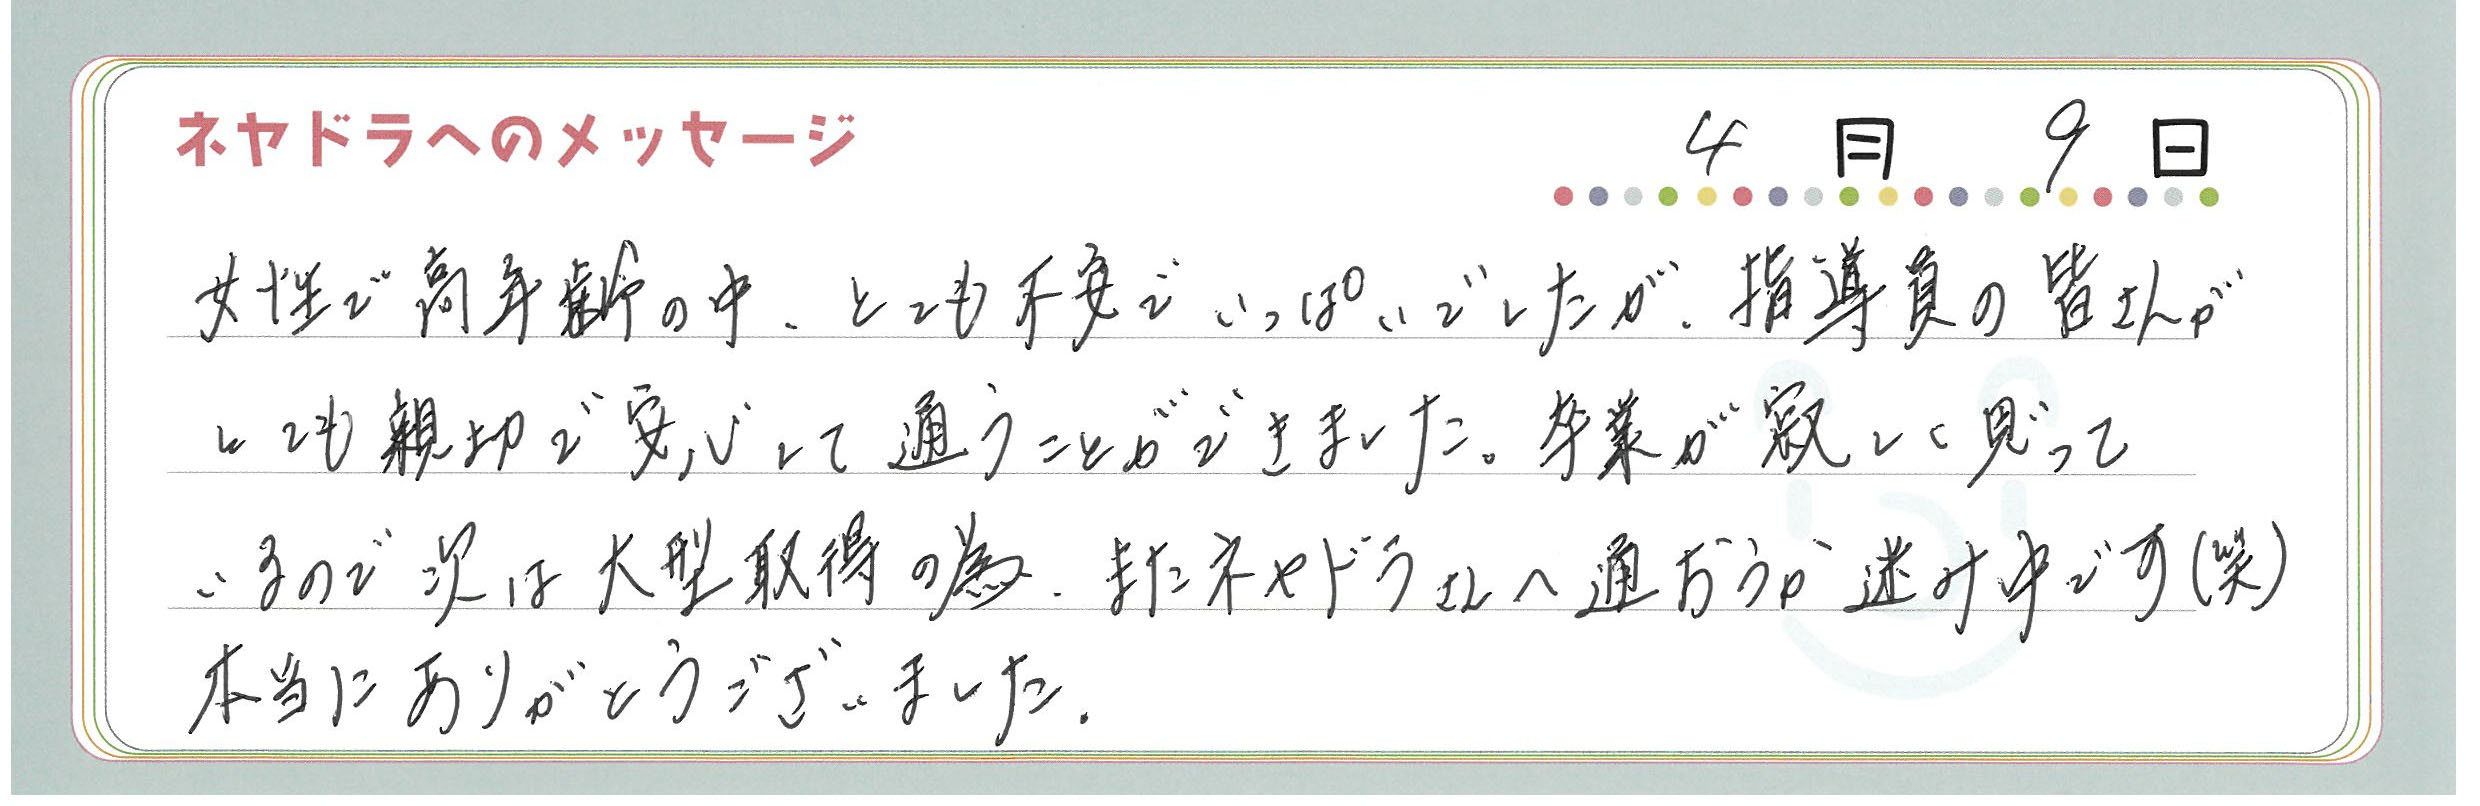 ネヤドラへのメッセージ
4月9日
女性で高年齢の中、とても不安でいっぱいでしたが、指導員の皆さんが
とても親切で安心して通うことができました。卒業が寂しく思って
いるので次は大型取得の為、またネヤドラさんへ通おうか迷い中です(笑)
本当にありがとうございました.